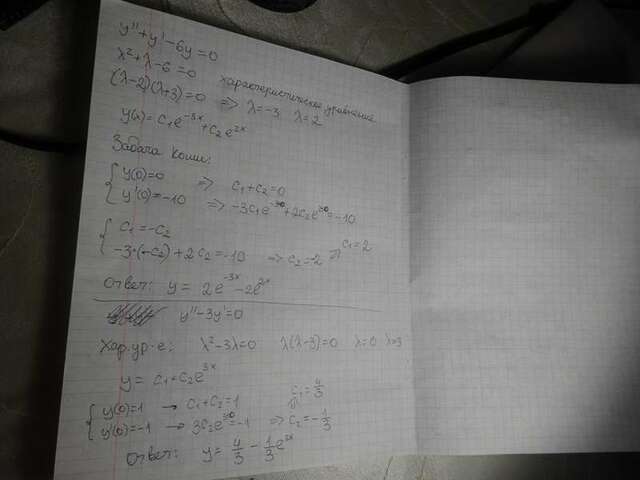 y'' + y' - 6y = 0
λ² + λ - 6 = 0 характеристическое уравнение
(λ-2)(λ+3) = 0 => λ = -3 λ = 2
y(x) = C₁e^{-3x} + C₂e^{2x}
Задача Коши:
{ y(0) = 0 => C₁ + C₂ = 0
y'(0) = -10 => -3C₁e^{-3·0} + 2C₂e^{2·0} = -10
{ C₁ = -C₂
-3·(-C₂) + 2C₂ = -10 => C₂ = -2 => C₁ = 2
Ответ: y = 2e^{-3x} - 2e^{2x}
y'' - 3y' = 0
Хар. ур-е: λ² - 3λ = 0 λ(λ-3) = 0 λ = 0 λ = 3
y = C₁ + C₂e^{3x}
{ y(0) = 1 → C₁ + C₂ = 1 C₁ = 4/3
y'(0) = -1 → 3C₂e^{3·0} = -1 => C₂ = -1/3
Ответ: y = 4/3 - 1/3 e^{3x}